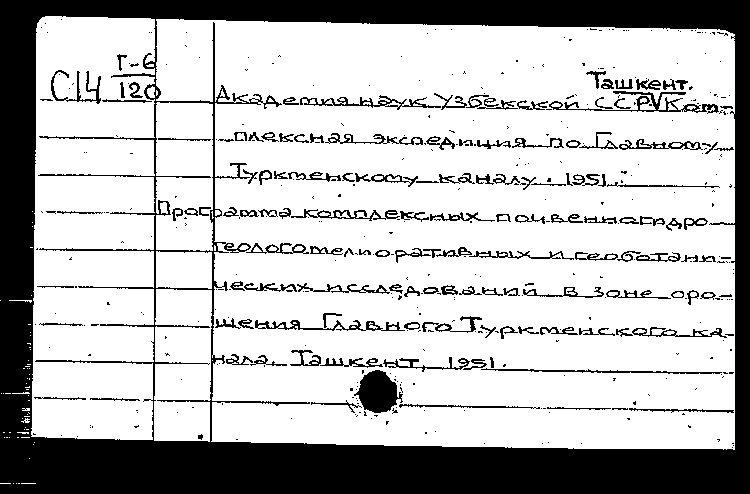 Г-6
С14 120
Ташкент.
Академия наук Узбекской ССР√Ком-
плексная экспедиция по Главному
Туркменскому каналу. 1951.
Программа комплексных почвенногидро-
геологомелиоративных и геоботани-
ческих исследований в зоне оро-
шения Главного Туркменского ка-
нала. Ташкент, 1951.